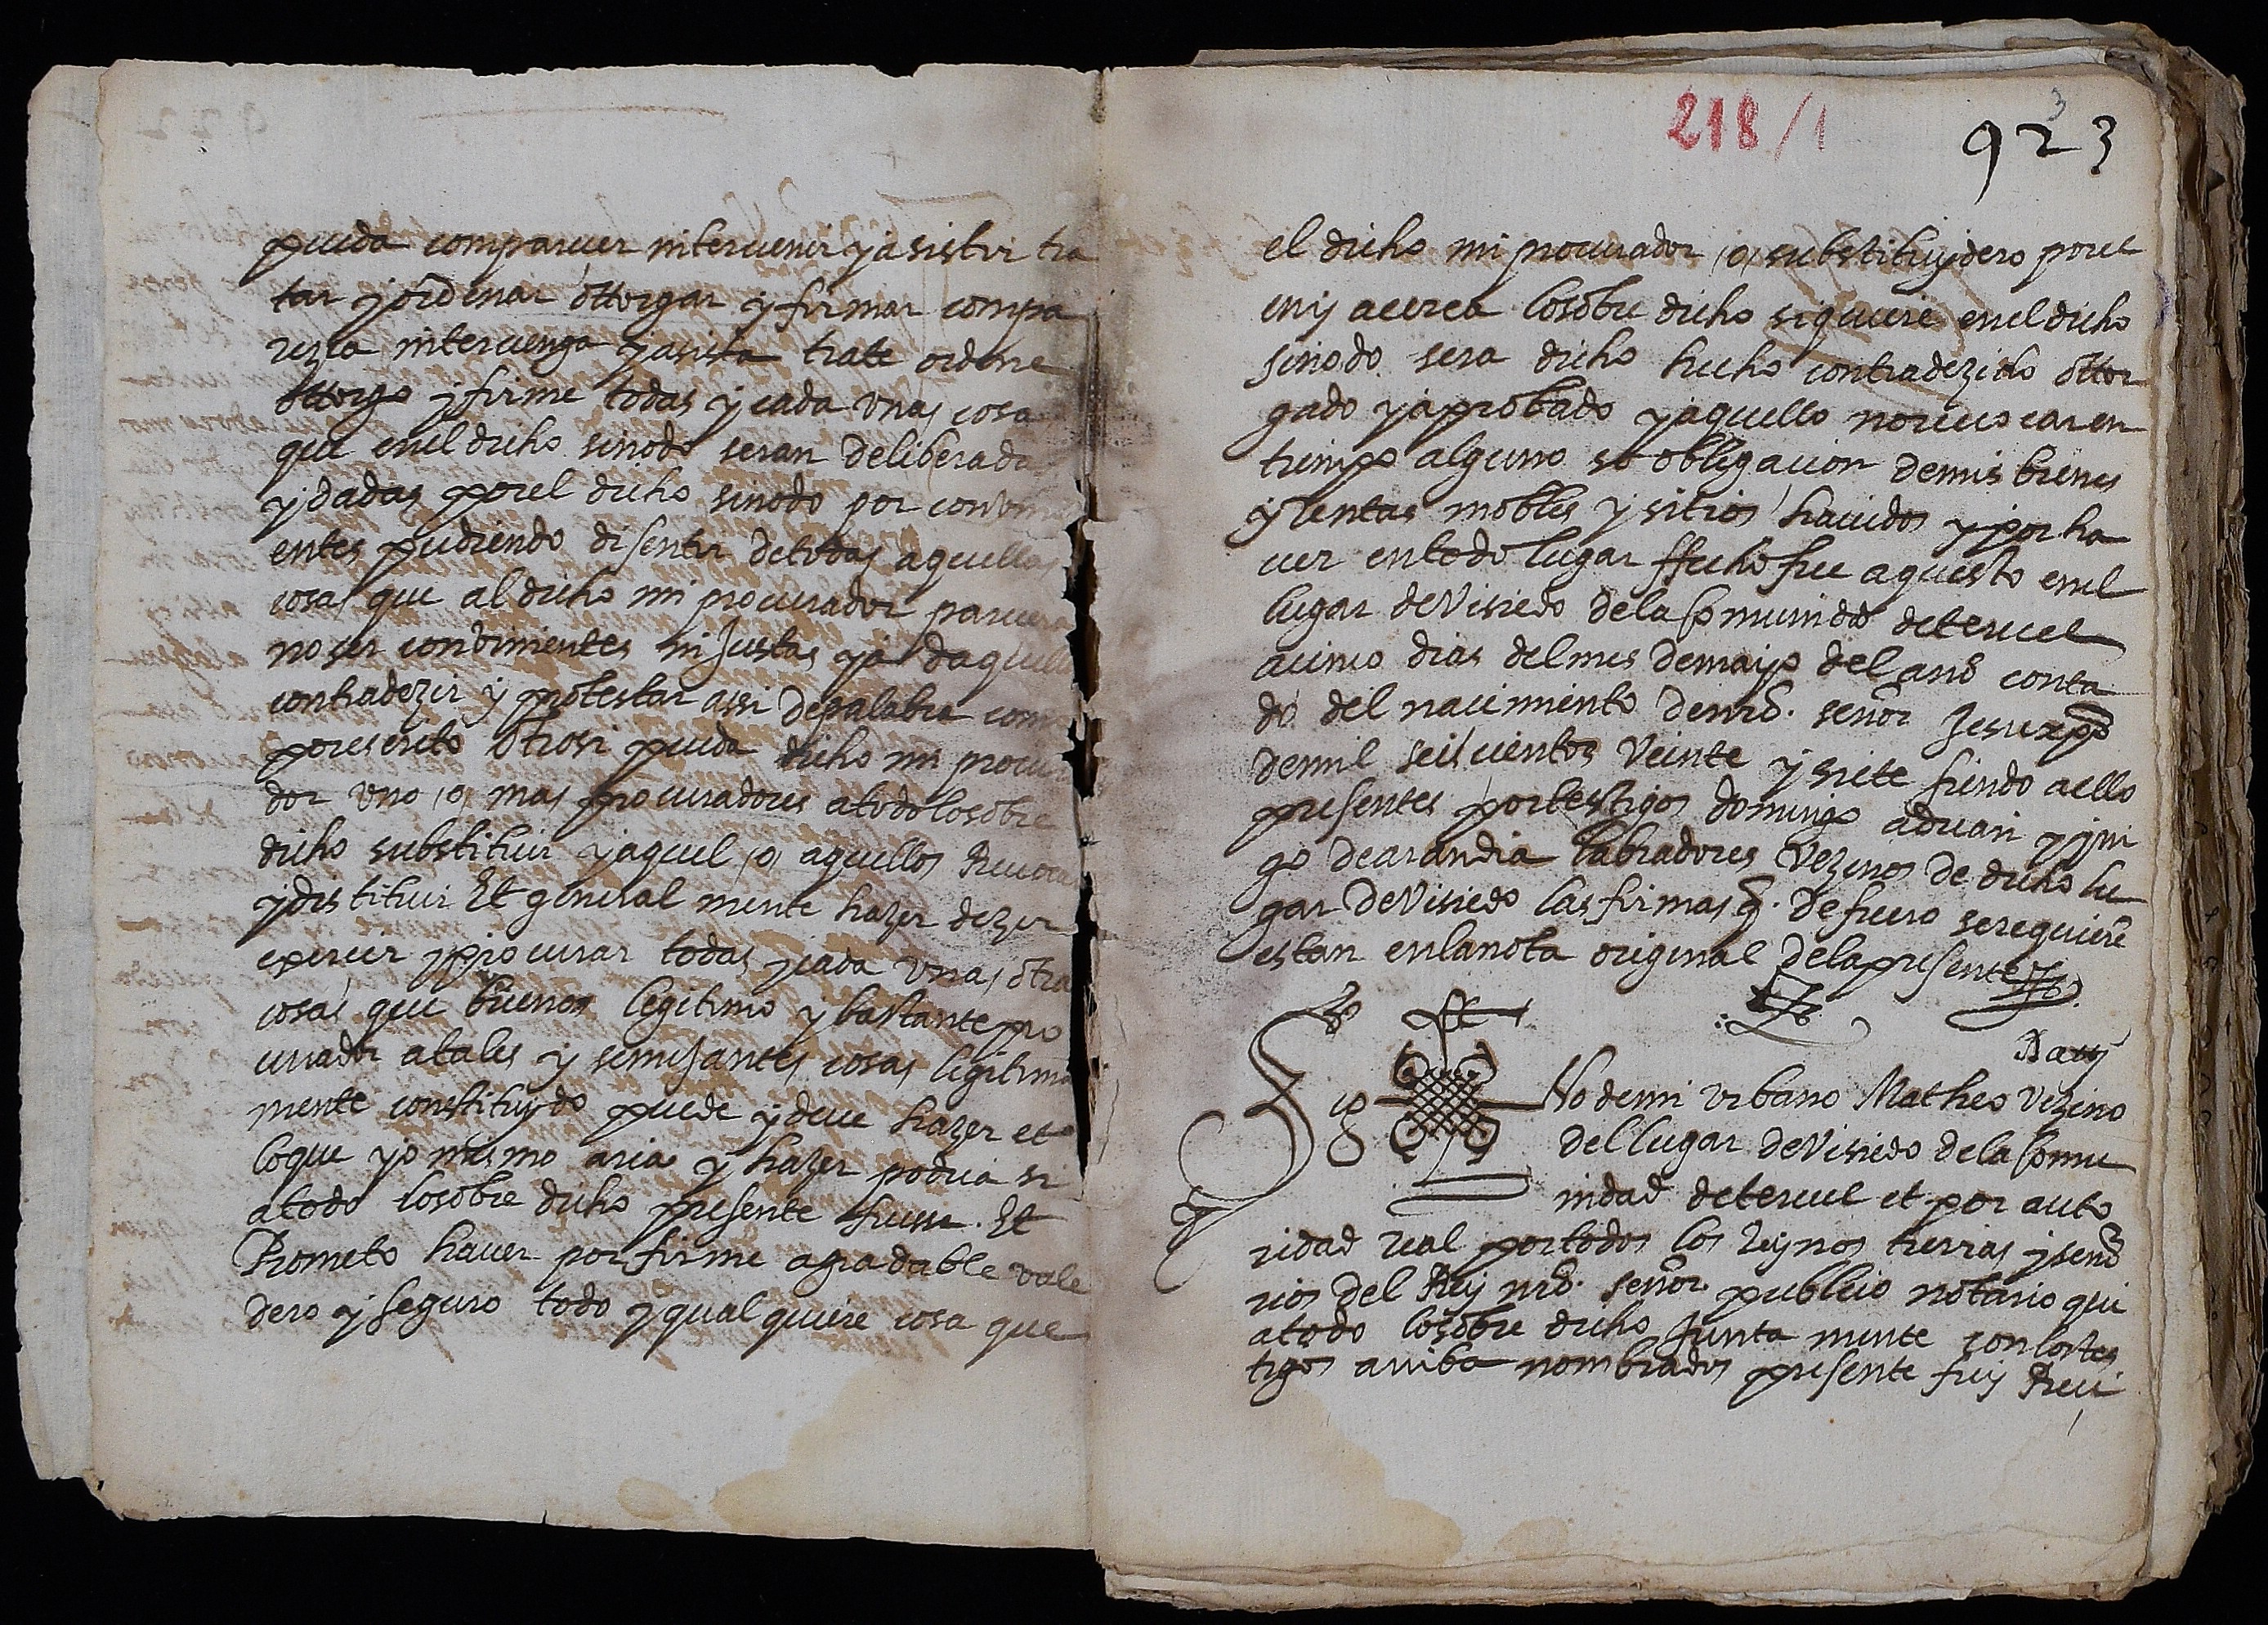 pueda comparecer intervenir y asistir tra
tar y ordenar ottorgar y firmar compa
rezca intervenga y asista trate ordene
ottorge y firme todas y cada unas cosa
que enel dicho sinodo seran deliberada
y dadas por el dicho sinodo por convini
entes pudiendo disentir de todas aquellas
cosas que al dicho mi procurador parecera
no ser convinientes ni justas y a daquella
contradezir y protestar assi de palabra como
por escrito otrosi pueda dicho mi procura
dor uno (o) mas procuradores atodo losobre
dicho substituir y aquel (o) aquellos Revocar
y distituir Et general mente hazer dezir
exercer y procurar todas y cada unas otra
cosas que buenos legitimo y bastante pro
curador atales y semejantes cosas legitima
mente constituydo puede y deve hazer et
loque yo mismo aria y hazer podria si
atodo losobre dicho presente fuesse. Et
Prometo haver por firme agradable vale
dero y seguro todo y qual quiere cosa que
218/1
3
923
el dicho mi procurador (o) substituydero por el
en y acerca losobre dicho siquiere enel dicho
sinodo sera dicho hecho contradezido ottor
gado y aprobado y aquello no revocar en
tiempo alguno so obligacion demis bienes
y rentas mobles y sitios havidos y por ha
ver en todo lugar ffecho fue aquesto enel
lugar de Visiedo dela Comunidad de teruel
acinco dias del mes de mayo del año conta
do del nacimiento de nro. señor Jesu xpo
de mil seiscientos Veinte y siete siendo aello
presentes por testigos domingo aduain y yni
go de arandia labradores Vezinos de dicho lu
gar de Visiedo las firmas q. De fuero se requieré
estan en la nota original dela presente
Sig No de mi Urbano Matheo Vezino
del lugar de Visiedo dela Comu
nidad de teruel et por auto
ridad real por todos los Reynos tierras y seño
rios del Rey nro. señor publico notario qui
atodo losobre dicho Junta mente con los tes
tigos arriba nombrados presente fuy Reci